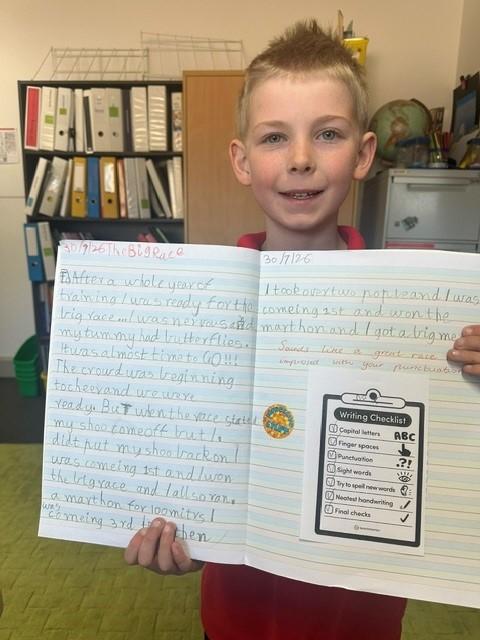 30/7/26 The Big Race
After a whole year of
training I was ready for the
big race... I was nervous and
my tummy had butterflies.
It was almost time to GO!!!
The crowd was beginning
to cheer and we were
ready. But when the race started
my shoo come off but I.
didt put my shoo back on I
was comeing 1st and I won
the big race and I also ran.
a marthon for 100mitrs I
was comeing 3rd then
30/7/26
I took over two popleand I was
comeing 1st and won the
marthon and I got a big me
Sounds like a great race
impressed with your punctuation
Writing Checklist
Capital letters ABC
Finger spaces
Punctuation .?!
Sight words
Try to spell new words
Neatest handwriting
Final checks